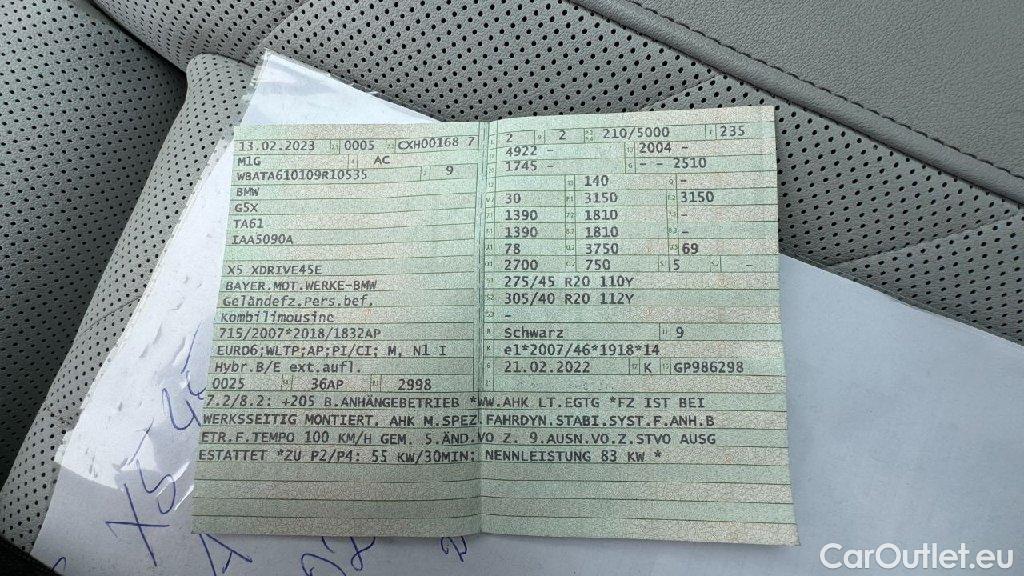 13.02.2023 0005 CXH00168 7
M1G AC
WBATA610109R10535 9
BMW
G5X
TA61
IAA5090A
X5 XDRIVE45E
BAYER.MOT.WERKE-BMW
Geländefz.Pers.bef.
Kombilimousine
715/2007*2018/1832AP
EURO6;WLTP;AP;PI/CI; M, N1 I
Hybr.B/E ext.aufl.
0025 36AP 2998
2 2 210/5000 235
4922 - 2004 -
1745 - - - 2510
140 -
30 3150 3150
1390 1810 -
1390 1810 -
78 3750 69
2700 750 5 -
275/45 R20 110Y
305/40 R20 112Y
-
Schwarz 9
e1*2007/46*1918*14
21.02.2022 K GP986298
7.2/8.2: +205 B.ANHÄNGEBETRIEB *WW.AHK LT.EGTG *FZ IST BEI
WERKSSEITIG MONTIERT. AHK M.SPEZ.FAHRDYN.STABI.SYST.F.ANH.B
ETR.F.TEMPO 100 KM/H GEM. 5.ÄND.VO Z. 9.AUSN.VO.Z.STVO AUSG
ESTATTET *ZU P2/P4: 55 KW/30MIN; NENNLEISTUNG 83 KW *
X5
CarOutlet.eu